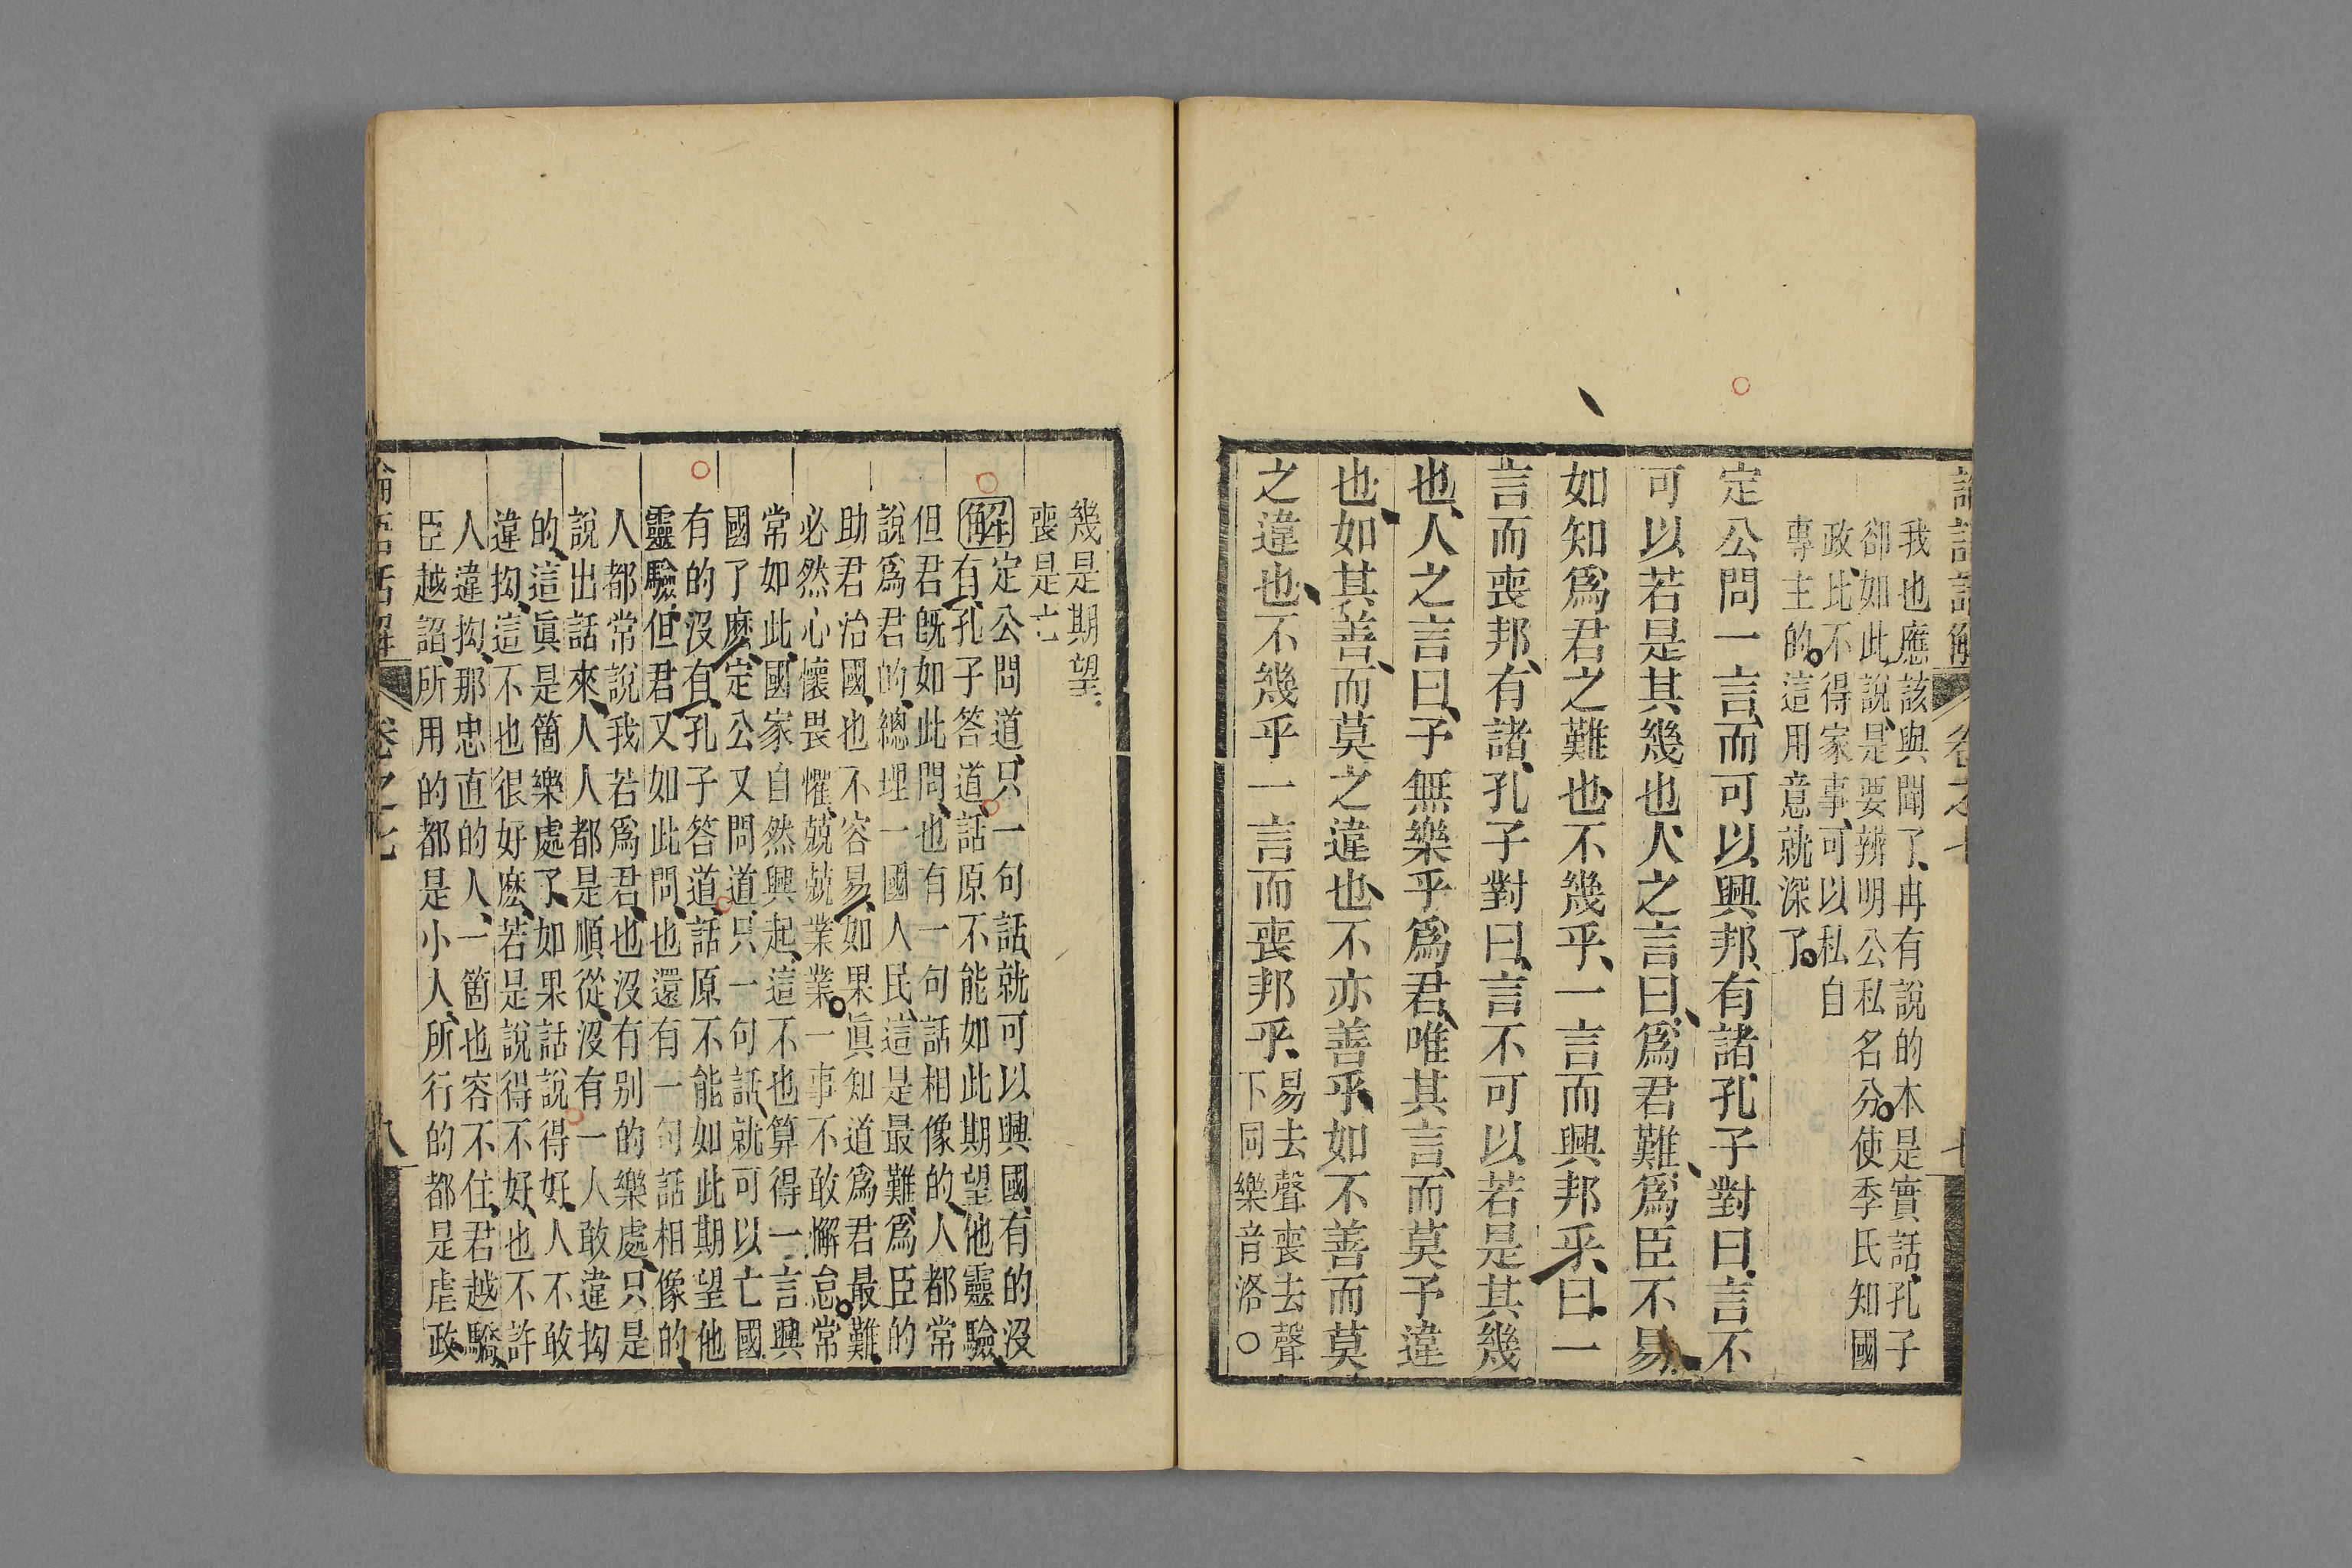 論語話解 卷之七 七
我也應該與聞了、冉有說的本是實話、孔子
卻如此說、是要辨明公私名分。使季氏知國
政、比不得家事、可以私自
專主的。這用意就深了。
定公問一言、而可以興邦、有諸、孔子對曰、言不
可以若是其幾也、人之言曰、爲君難、爲臣不易、
如知爲君之難也、不幾乎、一言而興邦乎、曰、一
言而喪邦、有諸、孔子對曰、言不可以若是其幾
也、人之言曰、予無樂乎爲君、唯其言、而莫予違
也、如其善、而莫之違也、不亦善乎、如不善而莫
之違也、不幾乎一言而喪邦乎、易去聲喪去聲
下同樂音洛○
幾是期望、
喪是亡
解定公問道、只一句話、就可以興國、有的沒
有、孔子答道、話原不能如此期望他靈驗、
但君旣如此問、也有一句話相像的、人都常
說爲君的、總理一國人民、這是最難、爲臣的
助君治國、也不容易、如果眞知道爲君最難、
必然心懷畏懼、兢兢業業。一事不敢懈怠。常
常如此、國家自然興起、這不也算得一言興
國了麽、定公又問道、只一句話、就可以亡國
有的沒有、孔子答道、話原不能如此期望他
靈驗、但君又如此問、也還有一句話相像的、
人都常說我若爲君、也沒有別的樂處、只是
說出話來、人人都是順從、沒有一人敢違拗
的、這眞是箇樂處了、如果話說得好、人不敢
違拗、這不也很好麽、若是說得不好、也不許
人違拗、那忠直的人、一箇也容不住、君越驕、
臣越諂、所用的都是小人、所行的都是虐政、
論語話解 卷之七 八